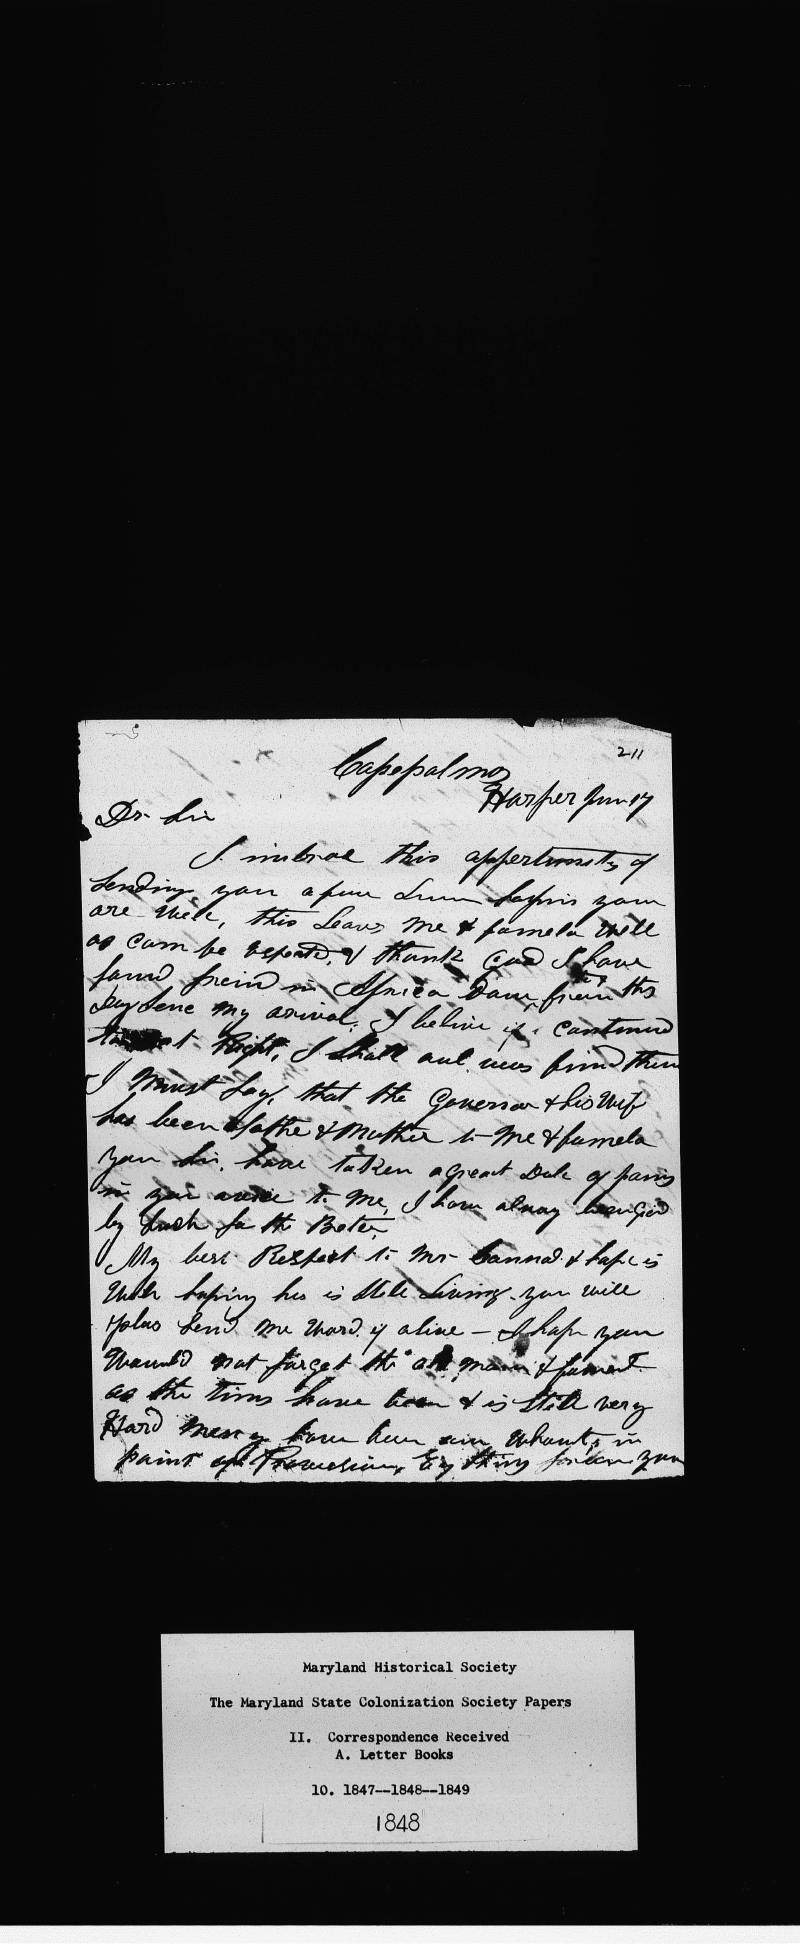 211
Capepalmos
Harper Jun 17
Dr Sir
I imbrac this oppertunity of
Sending you a fue Lines hopin you
are Well, this Leavs me & famela Well
as can be Expected, & thank God I have
found freind in Africa
my arival, I belive if continued
Right, I Shall find them
I Must Say, that the Governor & his Wife
has been a father & Mother to Me & famela
you Sir, have taken a Great Dale of pains
in you to Me, I have alway been
by Such for the Beter,
My best Respect to Mr & hope is
Well hoping he is Still Living you will
plas Send me Word if alive — I hope you
Would not forget the old man &
as the times have been & is Still very
Hard Meny have been in Whant, in
paint of Provision, from you
Maryland Historical Society
The Maryland State Colonization Society Papers
II. Correspondence Received
A. Letter Books
10. 1847--1848--1849
1848